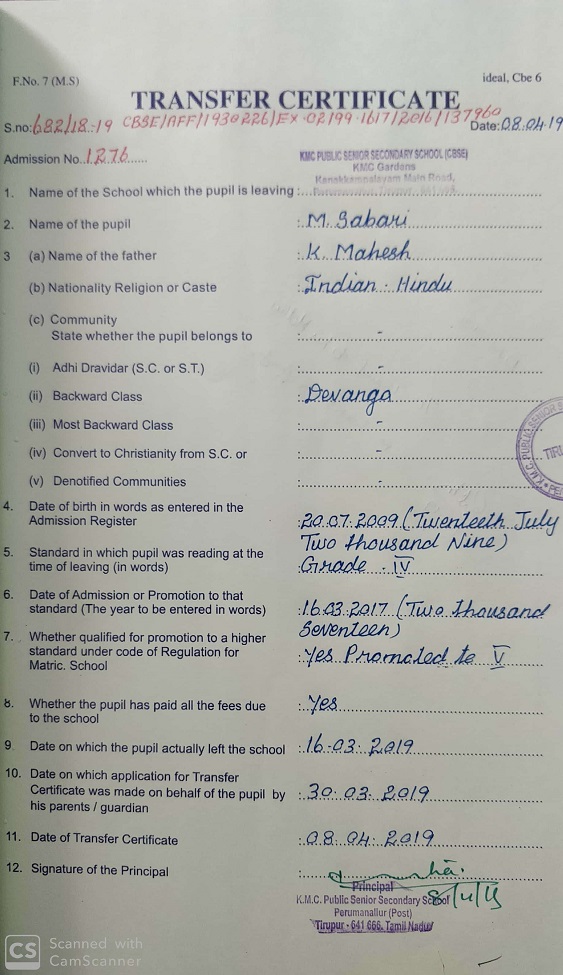 F.No. 7 (M.S)
ideal, Cbe 6
TRANSFER CERTIFICATE
S.no: 682/18-19 CBSE/AFF/1930226/EX-02199-1617/2016/137960 Date: 08.04.19
Admission No. 1276
KMC PUBLIC SENIOR SECONDARY SCHOOL (CBSE)
KMC Gardens
Kanakkampalayam Main Road,
1. Name of the School which the pupil is leaving :
2. Name of the pupil : M. Sabari
3 (a) Name of the father : K. Mahesh
(b) Nationality Religion or Caste : Indian - Hindu
(c) Community
State whether the pupil belongs to : -
(i) Adhi Dravidar (S.C. or S.T.) : -
(ii) Backward Class : Devanga
(iii) Most Backward Class : -
(iv) Convert to Christianity from S.C. or : -
(v) Denotified Communities : -
4. Date of birth in words as entered in the
Admission Register : 20.07.2009 (Twenteeth July
Two thousand Nine)
5. Standard in which pupil was reading at the
time of leaving (in words) : Grade - IV
6. Date of Admission or Promotion to that
standard (The year to be entered in words) : 16.03.2017 (Two thousand
Seventeen)
7. Whether qualified for promotion to a higher
standard under code of Regulation for : Yes Promoted to V
Matric. School
8. Whether the pupil has paid all the fees due : Yes
to the school
9 Date on which the pupil actually left the school : 16-03-2019
10. Date on which application for Transfer
Certificate was made on behalf of the pupil by : 30.03.2019
his parents / guardian
11. Date of Transfer Certificate : 08.04.2019
12. Signature of the Principal :
Principal
K.M.C. Public Senior Secondary School
Perumanallur (Post)
Tirupur - 641 666. Tamil Nadu
K.M.C. PUBLIC SENIOR
CS Scanned with
CamScanner